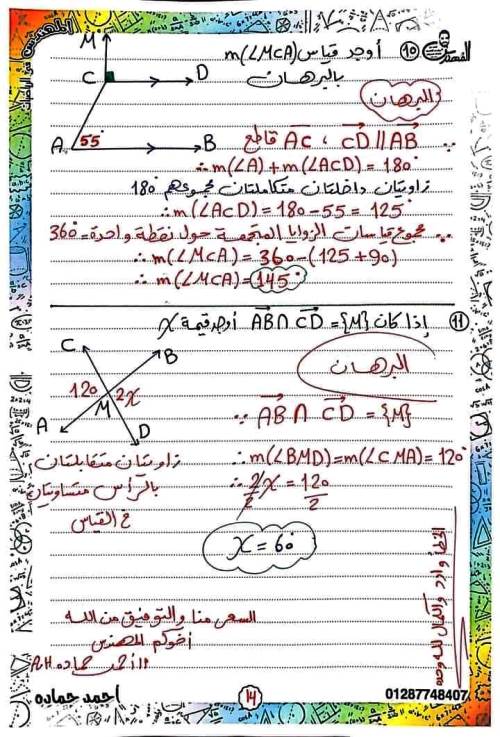 ⑩ أوجد قياس m(∠MCA)
بالبرهان
البرهان
M
C
D
A
55°
B
∵ CD // AB ، AC قاطع
∴ m(∠A) + m(∠ACD) = 180°
زاويتان داخلتان متكاملتان مجموعهم 180
∴ m(∠ACD) = 180 - 55 = 125°
∵ مجموع قياسات الزوايا المتجمعة حول نقطة واحدة = 360
∴ m(∠MCA) = 360 - (125 + 90)
∴ m(∠MCA) = 145°
⑪ إذا كان AB ∩ CD = {M} أوجد قيمة x
البرهان
C
B
120
2x
M
A
D
∵ AB ∩ CD = {M}
∴ m(∠BMD) = m(∠CMA) = 120°
زاويتان متقابلتان
بالرأس متساويتان
في القياس
∴ 2x/2 = 120/2
x = 60
السعى منا والتوفيق من الله
أخوكم المهندس
أ/ أحمد حماده A.H
الخطأ وارد والكمال لله وحده
احمد حماده
14
01287748407